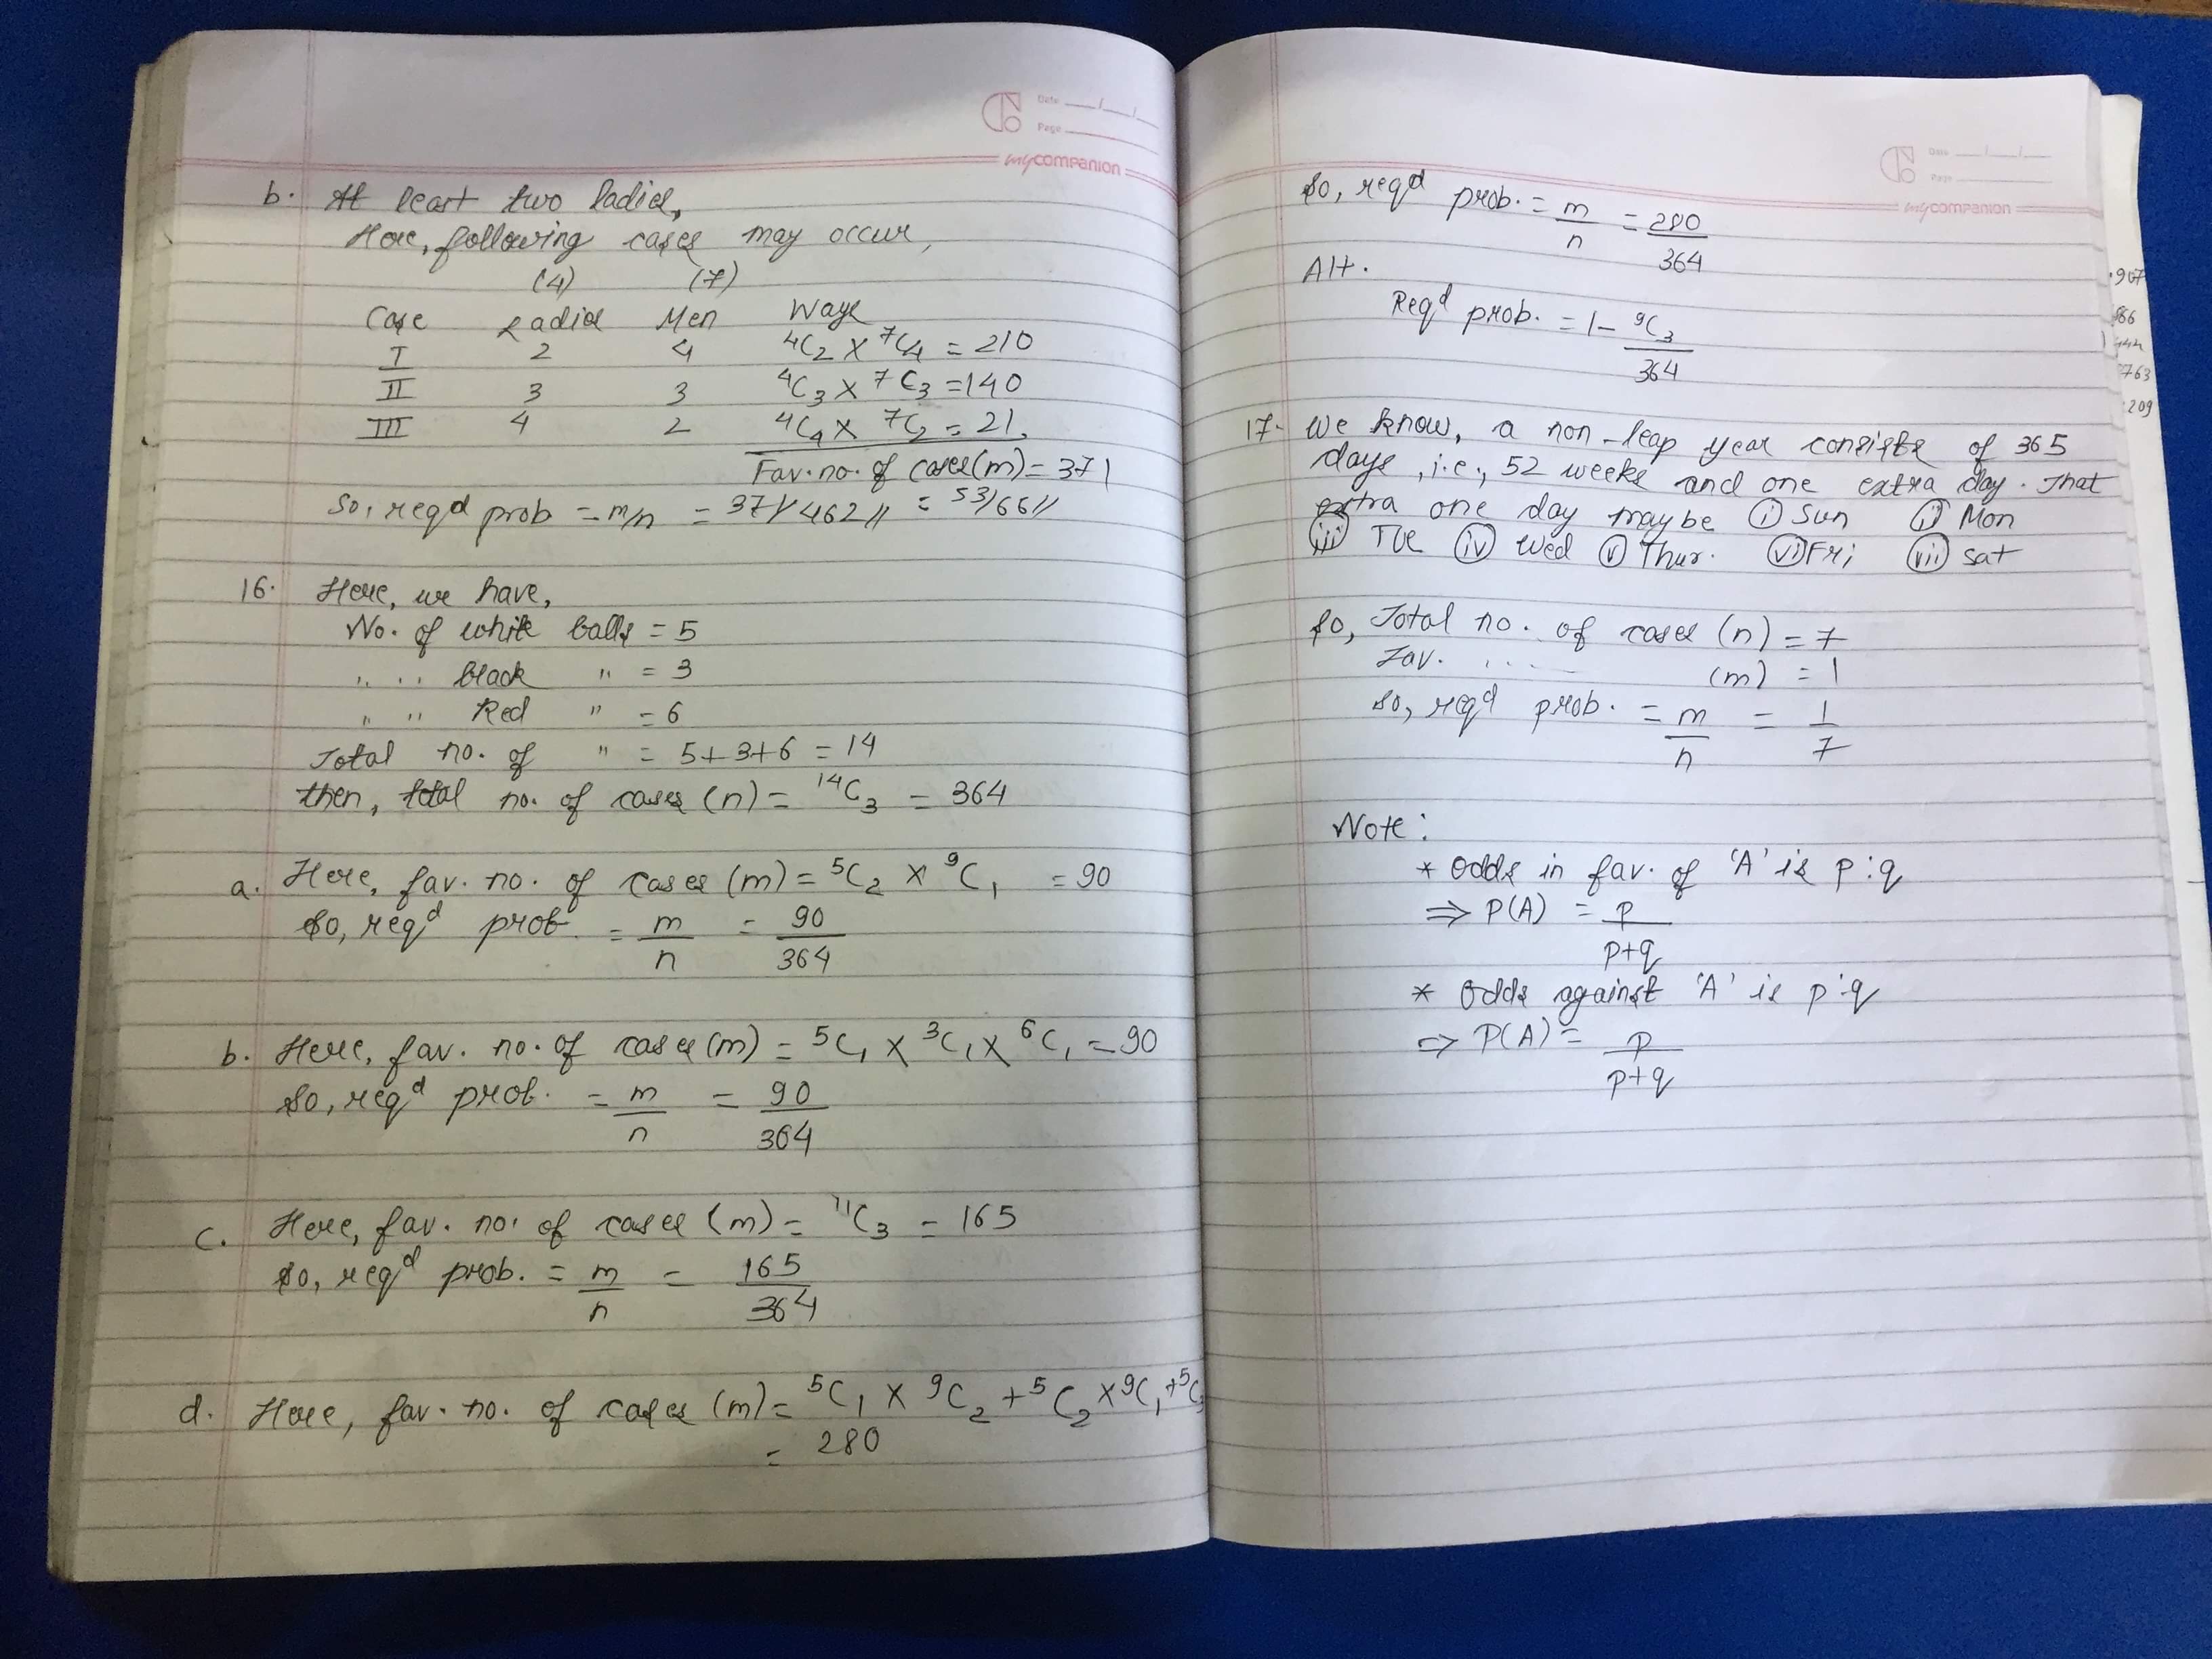 Date
Page
mycompanion
b. At least two ladies,
Here, following cases may occur,
(4) (7)
Case Ladies Men Ways
I 2 4 ⁴C₂ X ⁷C₄ = 210
II 3 3 ⁴C₃ X ⁷C₃ = 140
III 4 2 ⁴C₄ X ⁷C₂ = 21.
Fav. no. of cases (m) = 371
So, reqd prob = m/n = 371/462 // = 53/66 //
16. Here, we have,
No. of white balls = 5
" " black " = 3
" " Red " = 6
Total no. of " = 5+3+6 = 14
then, total no. of cases (n) = ¹⁴C₃ = 364
a. Here, fav. no. of cases (m) = ⁵C₂ X ⁹C₁ = 90
So, reqd prob. = m/n = 90/364
b. Here, fav. no. of cases (m) = ⁵C₁ X ³C₁ X ⁶C₁ = 90
So, reqd prob. = m/n = 90/364
c. Here, fav. no. of cases (m) = ¹¹C₃ = 165
So, reqd prob. = m/n = 165/364
d. Here, fav. no. of cases (m) = ⁵C₁ X ⁹C₂ + ⁵C₂ X ⁹C₁ + ⁵C₃
= 280
Date
Page
mycompanion
So, reqd prob. = m/n = 280/364
Alt.
Reqd prob. = 1 - ⁹C₃/364
17. We know, a non-leap year consists of 365
days, i.e., 52 weeks and one extra day. That
extra one day maybe (i) Sun (ii) Mon
(iii) Tue (iv) Wed (v) Thur. (vi) Fri (vii) Sat
So, Total no. of cases (n) = 7
Fav. .. .. (m) = 1
So, reqd prob. = m/n = 1/7
Note:
* Odds in fav. of 'A' is p:q
⇒ P(A) = p/p+q
* Odds against 'A' is p:q
⇒ P(A) = p/p+q
763
209